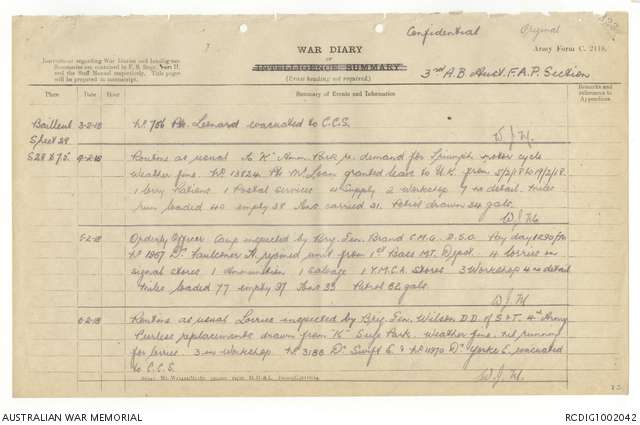 Confidential Original
7
WAR DIARY
or
INTELLIGENCE SUMMARY
(Erase heading not required)
Army Form C. 2118.
Instructions regarding War Diaries and Intelligence
Summaries are contained in F. S. Regs., Part II.
and the Staff Manual respectively. Title pages
will be prepared in manuscript.
3rd A.B. Aust. F.A.P. Section
Place Date Hour Summary of Events and Information
Remarks and
references to
Appendices
Bailleul 3-2-18 No 756 Pte Leonard evacuated to C.C.S.
W.J.M.
Sheet 28
S28 4-2-18 Routine as usual to "K" Amm. Park re demand for Triumph motor cycle
weather fine. No 13824 Pte McLean granted leave to U.K. from 5/2/18 to 19/2/18.
1 lorry Rations 1 Postal services 4 Supply 2 Workshop 7 no detail. Miles
run loaded 40 empty 38 Tons carried 31. Petrol drawn 34 galls.
W.J.M.
5-2-18 Orderly Officer Camp inspected by Brig. Gen. Brand C.M.G. D.S.O. Pay day
No 1857 Dr Faulkner A. rejoined unit from 1st Base M.T. Depot. 4 lorries on
signal stores 1 Ammunition 1 Salvage 1 Y.M.C.A. Stores 3 Workshop 4 no detail
Miles loaded 77 empty 37 Tons 33 Petrol 62 galls.
W.J.M
6-2-18 Routine as usual Lorries inspected by Brig. Gen. Wilson D.D. of S & T. 4th Army
Peerless replacements drawn from "K" Supp Park. Weather fine. Nil running
for lorries. 3 in workshop. No 3188 Dr Swift E. & No 11970 Dr Yorke E. evacuated
to C.C.S.
W.J.M.
AUSTRALIAN WAR MEMORIAL
RCDIG1002042